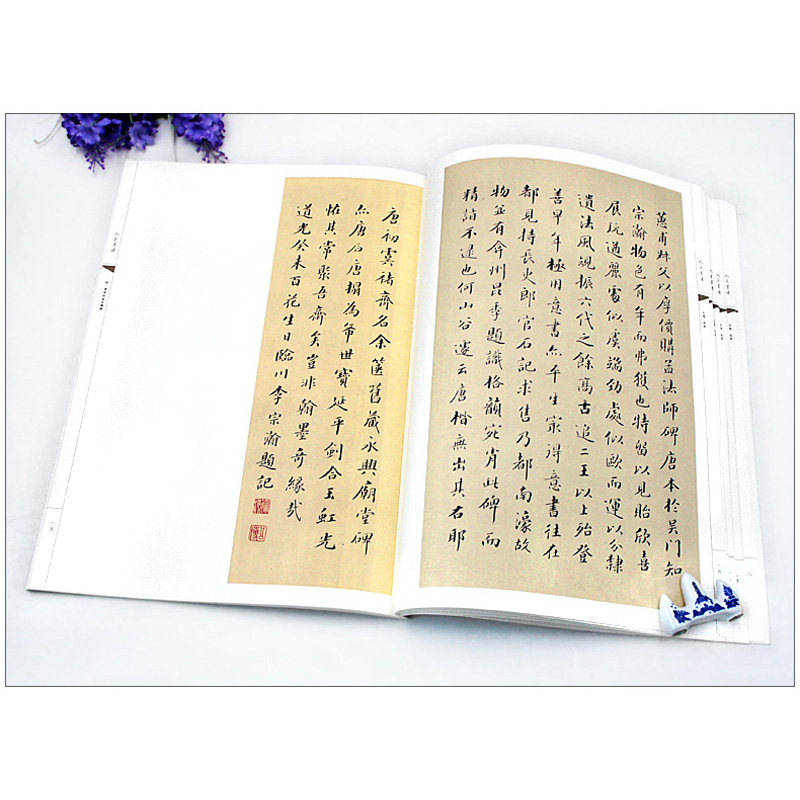 蕙甫姊父以厚價購孟法師碑唐本於吳门知
宗瀚物色有年而弗獲也特留以見貽欣喜
展玩遒麗處似虞端勁處似歐而運以分隸
遺法風規振六代之餘高古追二王以上殆登
善早年極用意書亦平生最得意書往在
都見持長史郎官石記求售乃都南濠故
物並有弇州昆季題識格韻宛肖此碑而
精詣不逮也何山谷遽云唐楷無出其右耶
唐初虞褚齊名余篋舊藏永興廟堂碑
亦唐石唐搨為希世寶延平劍合玉虹光
恠其常聚吾齋矣豈非翰墨奇緣哉
道光癸未百花生日臨川李宗瀚題記